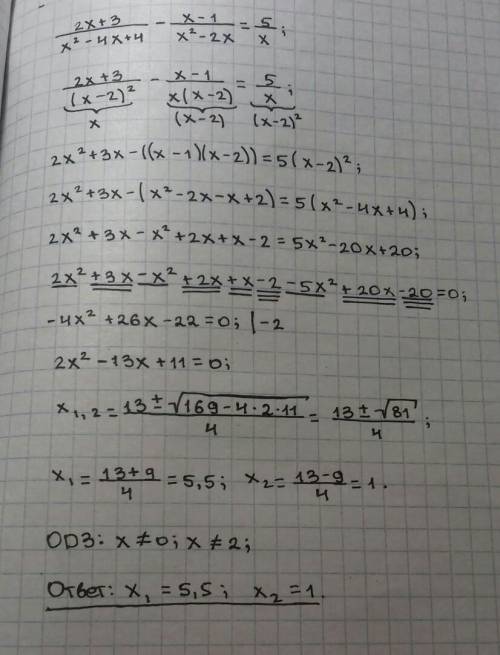 (2x+3)/(x²-4x+4) - (x-1)/(x²-2x) = 5/x;
(2x+3)/(x-2)² - (x-1)/(x(x-2)) = 5/x;
x (x-2) (x-2)²
2x²+3x-((x-1)(x-2))=5(x-2)²;
2x²+3x-(x²-2x-x+2)=5(x²-4x+4);
2x²+3x-x²+2x+x-2=5x²-20x+20;
2x²+3x-x²+2x+x-2-5x²+20x-20=0;
-4x²+26x-22=0; |-2
2x²-13x+11=0;
x₁,₂=(13±√(169-4·2·11))/4=(13±√81)/4;
x₁=(13+9)/4=5,5; x₂=(13-9)/4=1.
ОДЗ: x≠0; x≠2;
Ответ: x₁=5,5; x₂=1.